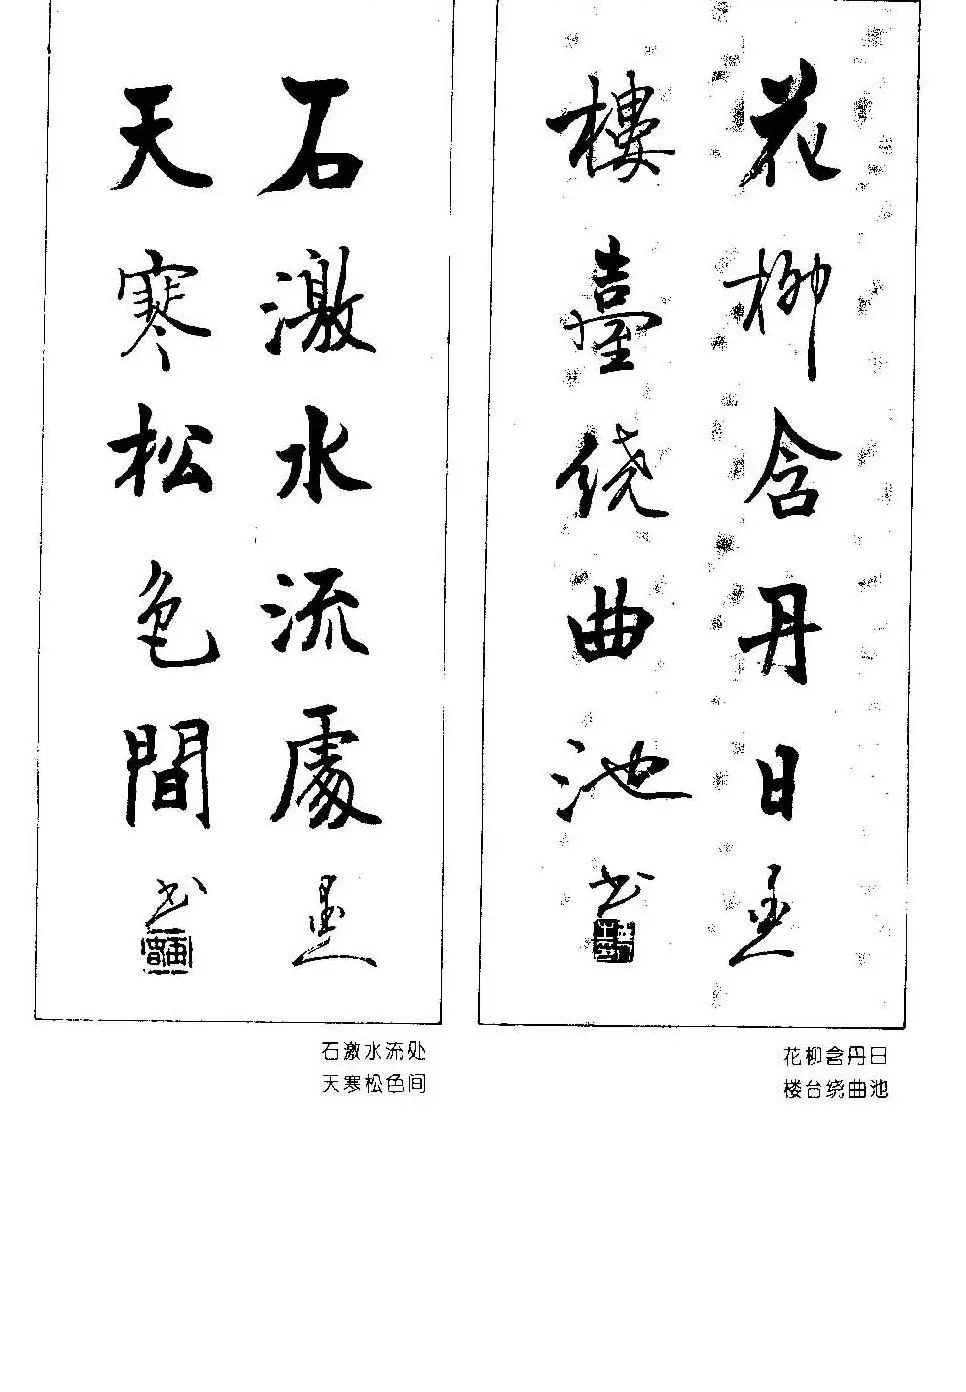 花柳含丹日
樓臺绕曲池
书
石激水流處
天寒松色間
墨人
书
花柳含丹日
楼台绕曲池
石激水流处
天寒松色间